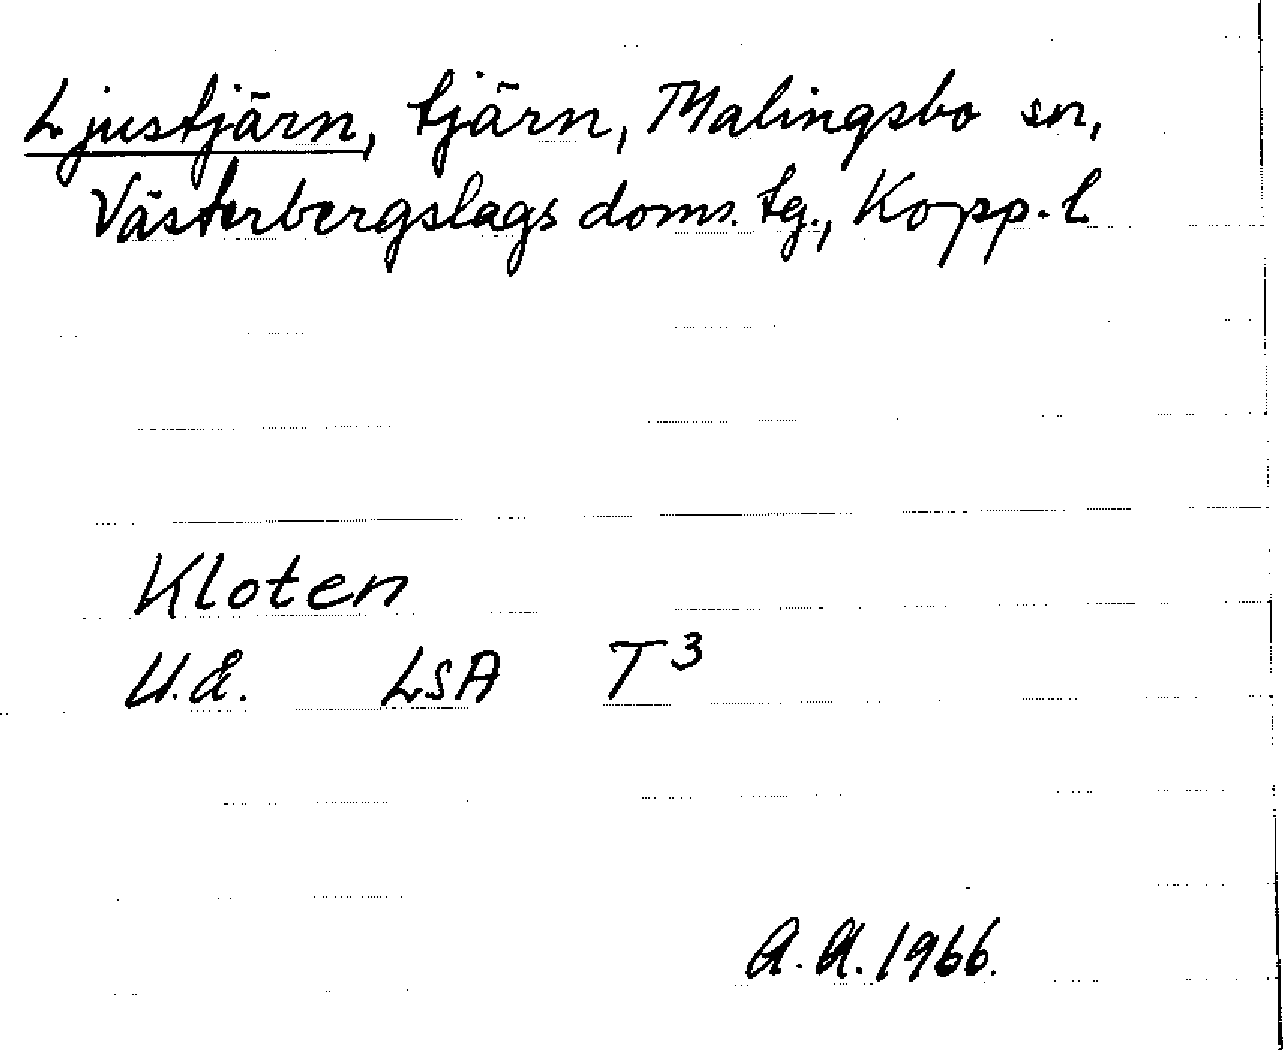 Ljustjärn, tjärn, Malingsbo sn,
Västerbergslags doms. tg., Kopp. l.
Kloten
U.d. LSA T3
A.A. 1966.